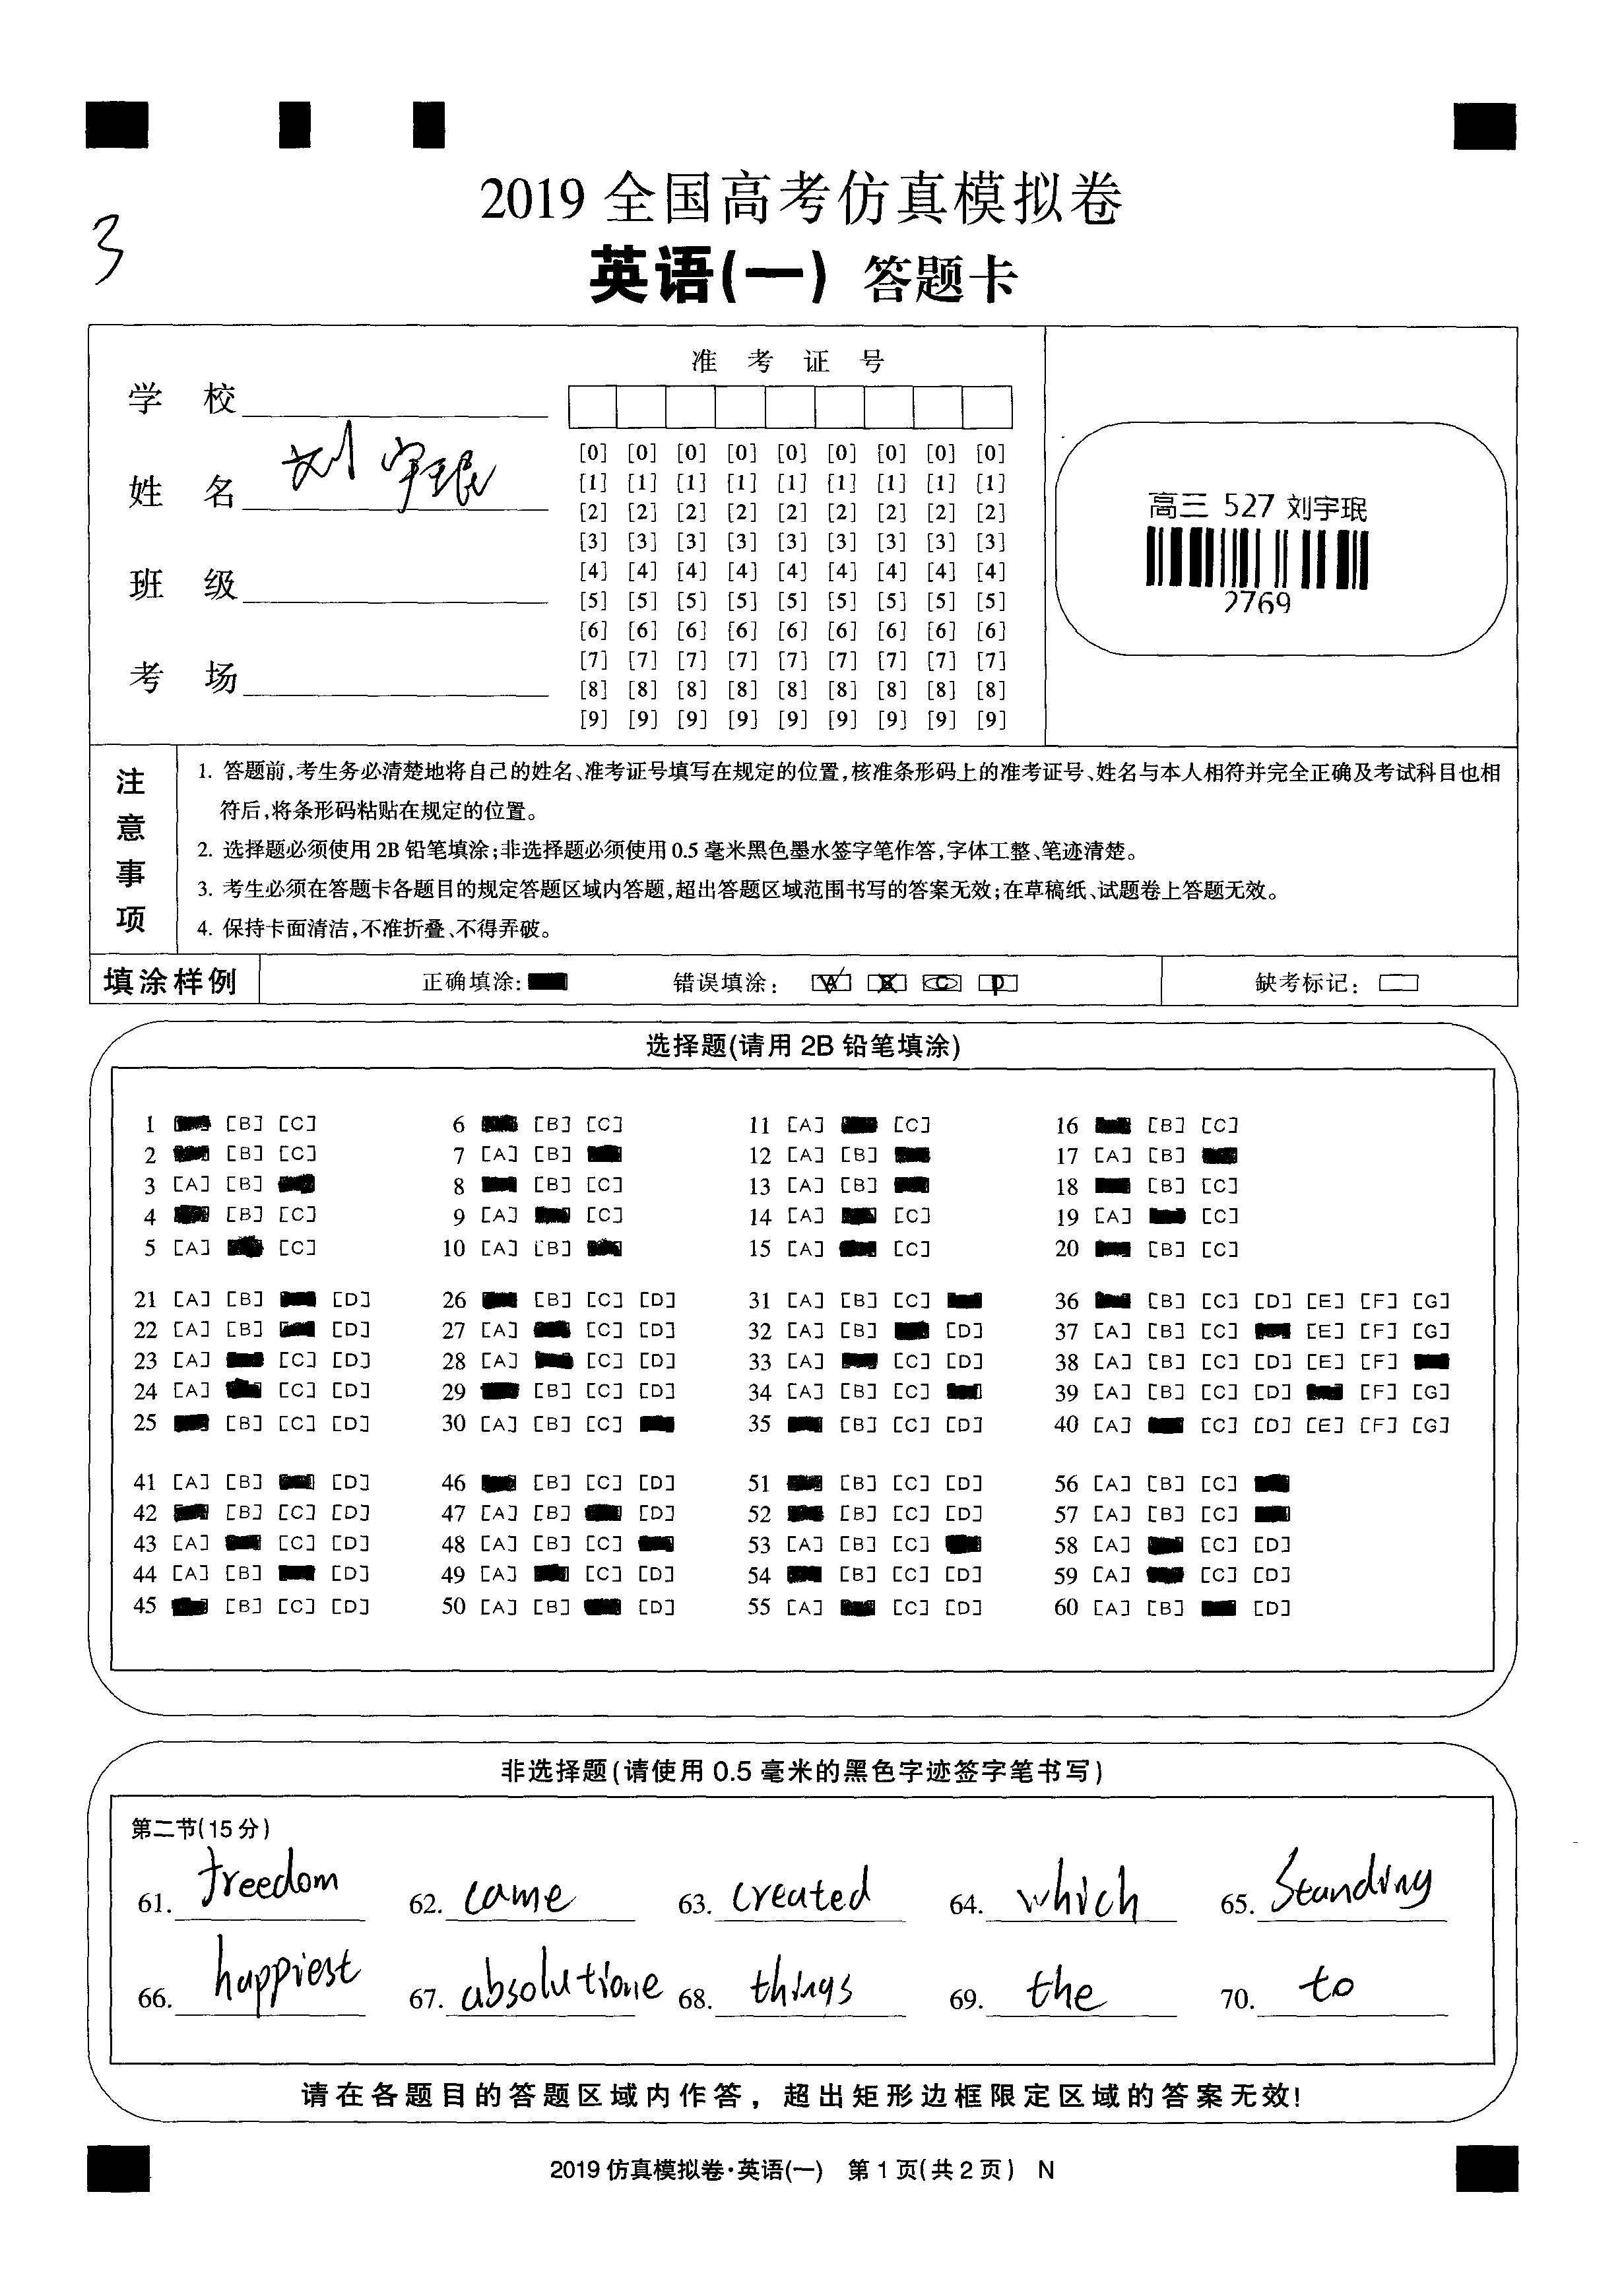 3
2019 全国高考仿真模拟卷
英语(一) 答题卡
准 考 证 号
学 校
姓 名 刘宇珉
班 级
考 场
[0] [0] [0] [0] [0] [0] [0] [0] [0]
[1] [1] [1] [1] [1] [1] [1] [1] [1]
[2] [2] [2] [2] [2] [2] [2] [2] [2]
[3] [3] [3] [3] [3] [3] [3] [3] [3]
[4] [4] [4] [4] [4] [4] [4] [4] [4]
[5] [5] [5] [5] [5] [5] [5] [5] [5]
[6] [6] [6] [6] [6] [6] [6] [6] [6]
[7] [7] [7] [7] [7] [7] [7] [7] [7]
[8] [8] [8] [8] [8] [8] [8] [8] [8]
[9] [9] [9] [9] [9] [9] [9] [9] [9]
高三 527 刘宇珉
2769
注意事项
1. 答题前,考生务必清楚地将自己的姓名、准考证号填写在规定的位置,核准条形码上的准考证号、姓名与本人相符并完全正确及考试科目也相
符后,将条形码粘贴在规定的位置。
2. 选择题必须使用 2B 铅笔填涂;非选择题必须使用 0.5 毫米黑色墨水签字笔作答,字体工整、笔迹清楚。
3. 考生必须在答题卡各题目的规定答题区域内答题,超出答题区域范围书写的答案无效;在草稿纸、试题卷上答题无效。
4. 保持卡面清洁,不准折叠、不得弄破。
填涂样例 正确填涂: 错误填涂: A B C D 缺考标记:
选择题(请用 2B 铅笔填涂)
1 [B] [C] 6 [B] [C] 11 [A] [C] 16 [B] [C]
2 [B] [C] 7 [A] [B] 12 [A] [B] 17 [A] [B]
3 [A] [B] 8 [B] [C] 13 [A] [B] 18 [B] [C]
4 [B] [C] 9 [A] [C] 14 [A] [C] 19 [A] [C]
5 [A] [C] 10 [A] [B] 15 [A] [C] 20 [B] [C]
21 [A] [B] [D] 26 [B] [C] [D] 31 [A] [B] [C] 36 [B] [C] [D] [E] [F] [G]
22 [A] [B] [D] 27 [A] [C] [D] 32 [A] [B] [D] 37 [A] [B] [C] [E] [F] [G]
23 [A] [C] [D] 28 [A] [C] [D] 33 [A] [C] [D] 38 [A] [B] [C] [D] [E] [F]
24 [A] [C] [D] 29 [B] [C] [D] 34 [A] [B] [C] 39 [A] [B] [C] [D] [F] [G]
25 [B] [C] [D] 30 [A] [B] [C] 35 [B] [C] [D] 40 [A] [C] [D] [E] [F] [G]
41 [A] [B] [D] 46 [B] [C] [D] 51 [B] [C] [D] 56 [A] [B] [C]
42 [B] [C] [D] 47 [A] [B] [D] 52 [B] [C] [D] 57 [A] [B] [C]
43 [A] [C] [D] 48 [A] [B] [C] 53 [A] [B] [C] 58 [A] [C] [D]
44 [A] [B] [D] 49 [A] [C] [D] 54 [B] [C] [D] 59 [A] [C] [D]
45 [B] [C] [D] 50 [A] [B] [D] 55 [A] [C] [D] 60 [A] [B] [D]
非选择题(请使用 0.5 毫米的黑色字迹签字笔书写)
第二节(15 分)
61. freedom 62. came 63. created 64. which 65. Standing
66. happiest 67. absolutione 68. things 69. the 70. to
请在各题目的答题区域内作答，超出矩形边框限定区域的答案无效!
2019 仿真模拟卷·英语(一) 第 1 页(共 2 页) N